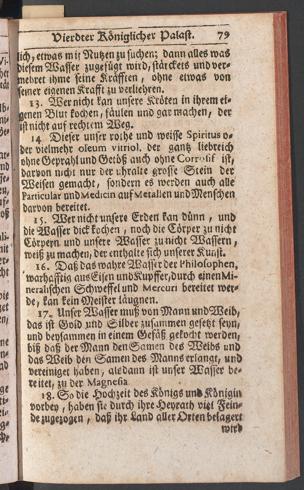 Vierdter Königlicher Palast. 79
lich, etwas mit Nutzen zu suchen; dann alles was
diesem Wasser zugefügt wird, stärckets und ver-
mehret ihme seine Kräfften, ohne etwas von
seiner eigenen Krafft zu verliehren.
13. Wer nicht kan unsere Kröten in ihrem ei-
genen Blut kochen, fäulen und gar machen, der
ist nicht auf rechtem Weg.
14. Dieser unser rothe und weisse Spiritus o-
der vielmehr oleum vitriol. der gantz liebreich
ohne Geprahl und Getöß auch ohne Corrosif ist,
darvon nicht nur der uhralte grosse Stein der
Weisen gemacht, sondern es werden auch alle
Particular und Medicin auf Metallen und Menschen
darvon bereitet.
15. Wer nicht unsere Erden kan dünn, und
die Wasser dick kochen, noch die Cörper zu nicht
Cörpern und unsere Wasser zu nicht Wassern,
weiß zu machen, der enthalte sich unserer Kunst.
16. Daß das wahre Wasser der Philosophen,
warhafftig aus Eisen und Kupffer, durch einen Mi-
neralischen Schweffel und Mercuri bereitet wer-
de, kan kein Meister läugnen.
17. Unser Wasser muß von Mann und Weib,
das ist Gold und Silber zusammen gesetzt seyn,
und beysammen in einem Gefäß gekocht werden,
biß daß der Mann den Samen des Weibs und
das Weib den Samen des Manns erlangt, und
vereiniget haben, alsdann ist unser Wasser be-
reitet, zu der Magnesia.
18. So die Hochzeit des Königs und Königin
vorbey, haben sie durch ihre Heyrath viel Fein-
de zugezogen, daß ihr Land aller Orten belagert
wird